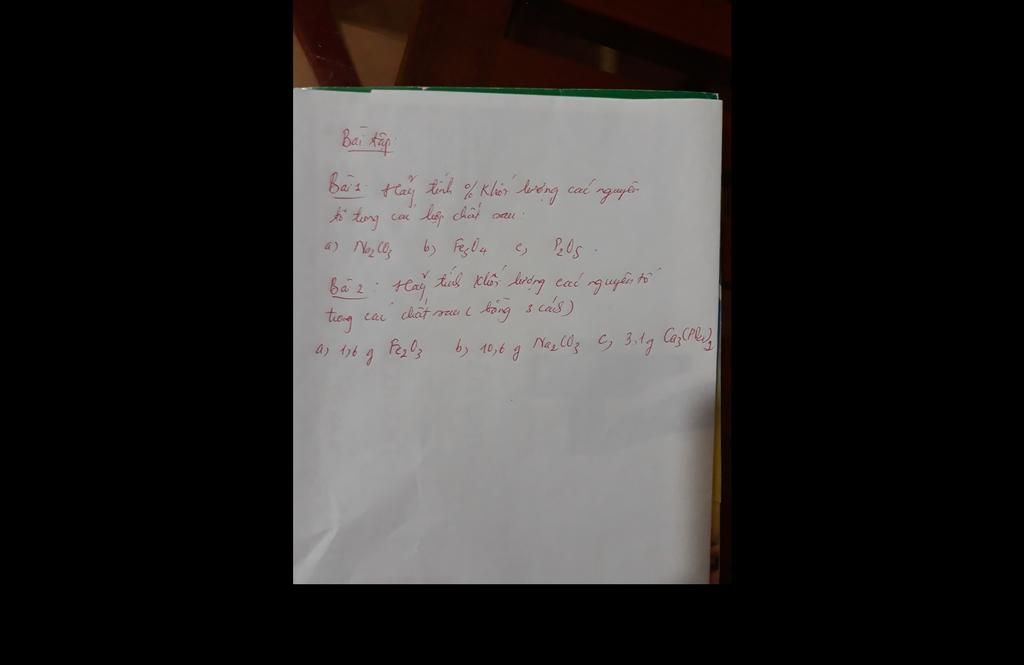 Bài tập:
Bài 1: Hãy tính % khối lượng các nguyên
tố trong các hợp chất sau:
a) Na2CO3 b) Fe3O4 c, P2O5.
Bài 2: Hãy tính khối lượng các nguyên tố
trong các chất sau ( bằng 3 cách)
a, 1,6 g Fe2O3 b, 10,6 g Na2CO3 c, 3,1g Ca3(PO4)2